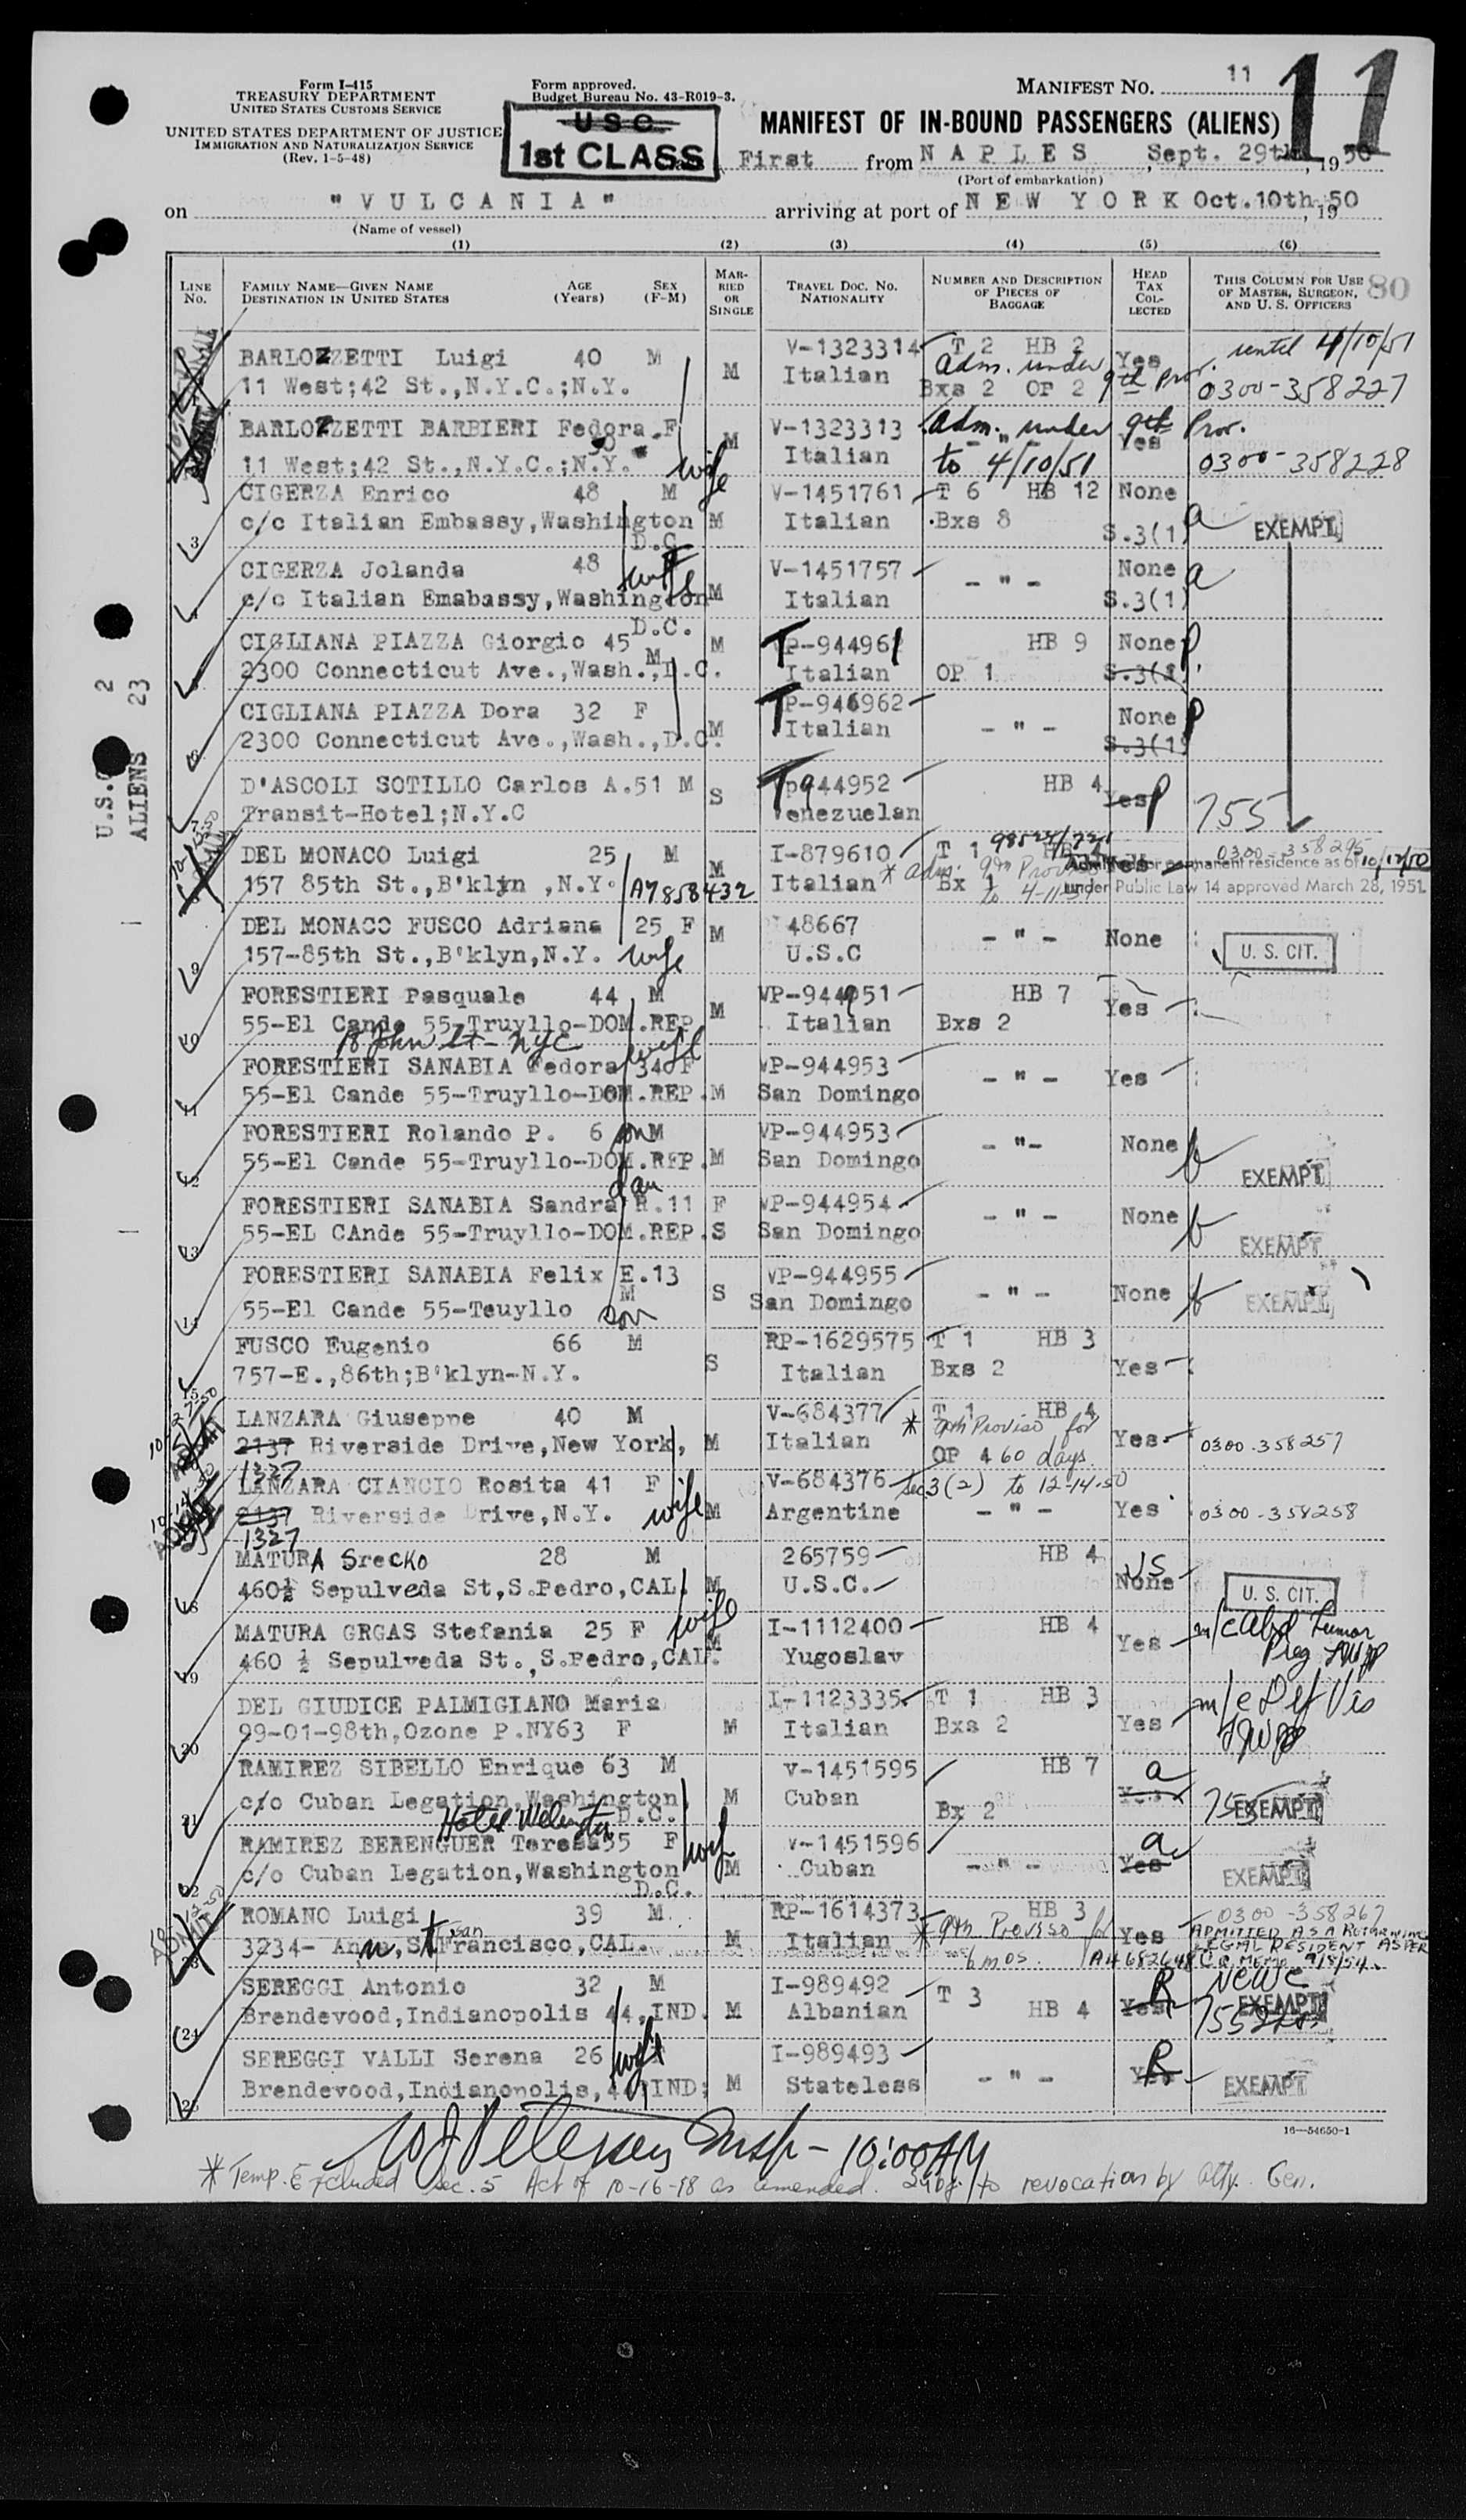 Form I-415
TREASURY DEPARTMENT
UNITED STATES CUSTOMS SERVICE
UNITED STATES DEPARTMENT OF JUSTICE
IMMIGRATION AND NATURALIZATION SERVICE
(Rev. 1-5-48)
Form approved.
Budget Bureau No. 43-R019-3.
U S C
1st CLASS
MANIFEST No. 11
11
MANIFEST OF IN-BOUND PASSENGERS (ALIENS)
First from NAPLES Sept. 29th, 1950
(Port of embarkation)
on "VULCANIA" arriving at port of NEW YORK Oct.10th, 1950
(Name of vessel)
(1) (2) (3) (4) (5) (6)
LINE No.
FAMILY NAME—GIVEN NAME
DESTINATION IN UNITED STATES
AGE (Years)
SEX (F-M)
MARRIED OR SINGLE
TRAVEL DOC. NO. NATIONALITY
NUMBER AND DESCRIPTION OF PIECES OF BAGGAGE
HEAD TAX COLLECTED
THIS COLUMN FOR USE OF MASTER, SURGEON, AND U. S. OFFICERS
80
U.S.C 2
ALIENS 23
BARLOZZETTI Luigi 40 M V-1323314 T 2 HB 2 Yes until 4/10/51
11 West;42 St.,N.Y.C.;N.Y. M Italian Adm. under 9th Prov. Bxs 2 OP 2 0300-358227
BARLOZZETTI BARBIERI Fedora F M V-1323313 Adm. under 9th Prov. Yes
11 West;42 St.,N.Y.C.;N.Y. wife Italian to 4/10/51 0300-358228
CIGERZA Enrico 48 M V-1451761 T 6 HB 12 None
3 c/c Italian Embassy,Washington D.C. M Italian Bxs 8 S.3(1) a EXEMPT
CIGERZA Jolanda 48 F wife V-1451757 - " - None a
4 c/c Italian Emabassy,Washington D.C. M Italian S.3(1)
CIGLIANA PIAZZA Giorgio 45 M M TP-944961 HB 9 None p
2300 Connecticut Ave.,Wash.,D.C. Italian OP 1 S.3(1)
CIGLIANA PIAZZA Dora 32 F M TP-946962 - " - None p
6 2300 Connecticut Ave.,Wash.,D.C. Italian S.3(1)
D'ASCOLI SOTILLO Carlos A. 51 M S Tp944952 HB 4 Yes p 755
7 Transit-Hotel;N.Y.C Venezuelan
DEL MONACO Luigi 25 M M I-879610 T 1 Yes 0300-358295
157 85th St.,B'klyn ,N.Y. A7858432 Italian Bx 1 to 4-11-51
Admitted for permanent residence as of 10/12/50
under Public Law 14 approved March 28, 1951.
DEL MONACO FUSCO Adriana 25 F M 48667 - " - None U. S. CIT.
9 157-85th St.,B'klyn,N.Y. wife U.S.C
FORESTIERI Pasquale 44 M M VP-944951 HB 7 Yes
10 55-El Cande 55-Truyllo-DOM.REP Italian Bxs 2
18 John St - NYC
FORESTIERI SANABIA Fedora 34 F wife VP-944953 - " - Yes
11 55-El Cande 55-Truyllo-DOM.REP. M San Domingo
FORESTIERI Rolando P. 6 son M VP-944953 - "- None EXEMPT
12 55-El Cande 55-Truyllo-DOM.REP. M San Domingo
FORESTIERI SANABIA Sandra R. 11 F dau VP-944954 - " - None EXEMPT
13 55-EL CAnde 55-Truyllo-DOM.REP. S San Domingo
FORESTIERI SANABIA Felix E. 13 M S VP-944955 - " - None EXEMPT
14 55-El Cande 55-Teuyllo son San Domingo
FUSCO Eugenio 66 M S RP-1629575 T 1 HB 3 Yes
15 757-E.,86th;B'klyn-N.Y. Italian Bxs 2
LANZARA Giuseppe 40 M V-684377 T 1 HB 4 Yes 0300-358257
2137 Riverside Drive,New York, M Italian * 9th Proviso for OP 4 60 days
1327
LANZARA CIANCIO Rosita 41 F V-684376 Sec 3(2) to 12-14-50
2137 Riverside Drive,N.Y. wife M Argentine - " - Yes 0300-358258
1327
MATURA Srecko 28 M 265759 HB 4 US
18 460½ Sepulveda St,S.Pedro,CAL. M U.S.C. None U. S. CIT.
MATURA GRGAS Stefania 25 F wife M I-1112400 HB 4 Yes m/c Abd Tumor
19 460 ½ Sepulveda St.,S.Pedro,CAL. Yugoslav Preg
DEL GIUDICE PALMIGIANO Maria I-1123335 T 1 HB 3 m/c Def Vis
20 99-01-98th,Ozone P.NY63 F M Italian Bxs 2 Yes
RAMIREZ SIBELLO Enrique 63 M V-1451595 HB 7 a
21 c/o Cuban Legation,Washington D.C. M Cuban Bx 2 Yes EXEMPT
RAMIREZ BERENGUER Teresa 55 F wife V-1451596 a
22 c/o Cuban Legation,Washington D.C. M Cuban - " - Yes EXEMPT
ROMANO Luigi 39 M RP-1614373 HB 3 0300-358267
23 3234- Ann,St San Francisco,CAL. M Italian * 9th Proviso for 6 mos. Yes A4682648
ADMITTED AS A RETURNING
LEGAL RESIDENT AS PER
C.O. MEMO 9/8/54
SEREGGI Antonio 32 M I-989492 T 3 HB 4 R
24 Brendevood,Indianopolis 44,IND. M Albanian Yes EXEMPT 755
SEREGGI VALLI Serena 26 F wife I-989493 R
25 Brendevood,Indianopolis,44 IND; M Stateless - " - Yes EXEMPT
16—54650-1
W J Petersen Insp - 10:00 AM
* Temp. Excluded Sec. 5 Act of 10-16-18 as amended. Subj. to revocation by Atty. Gen.